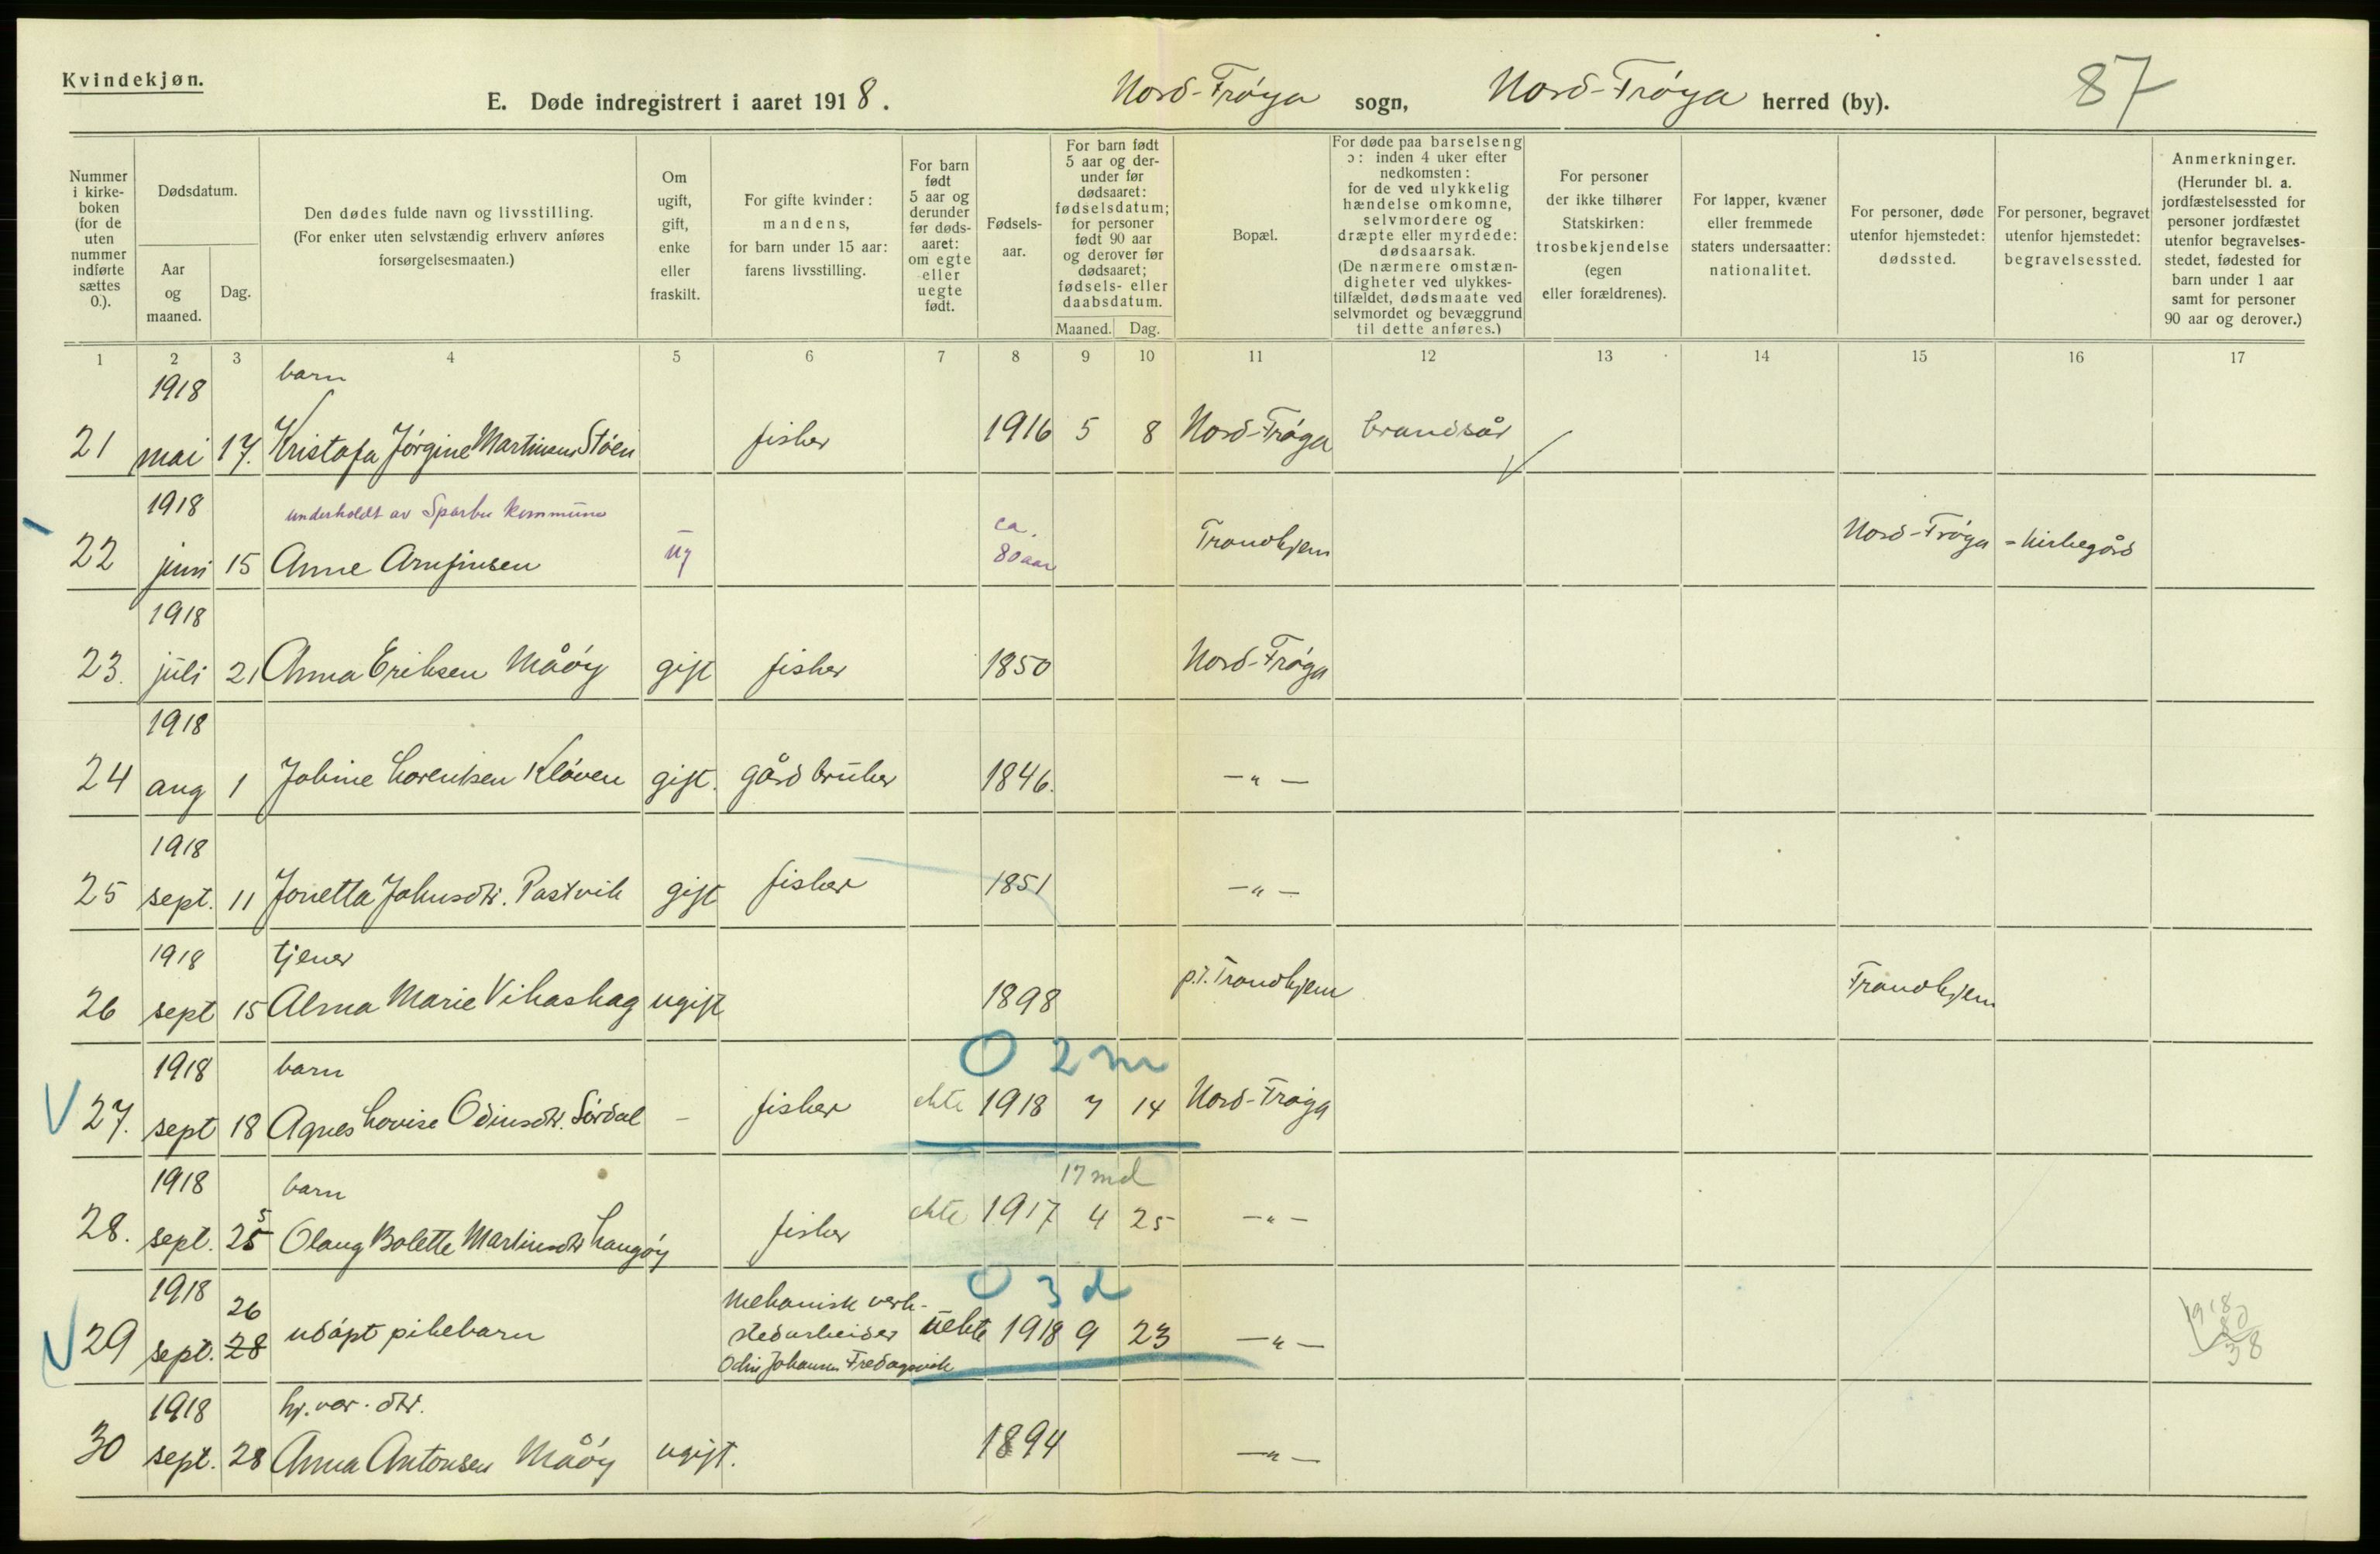 Kvindekjøn.
E. Døde indregistrert i aaret 1918.
Nord-Frøya sogn, Nord-Frøya herred (by).
87
Nummer i kirke-boken (for de uten nummer indførte sættes 0.).
Dødsdatum.
Aar og maaned.
Dag.
Den dødes fulde navn og livsstilling.
(For enker uten selvstændig erhverv anføres
forsørgelsesmaaten.)
Om ugift, gift, enke eller fraskilt.
For gifte kvinder:
mandens,
for barn under 15 aar:
farens livsstilling.
For barn født 5 aar og derunder før døds-aaret: om egte eller uegte født.
Fødsels-aar.
For barn født 5 aar og der-under før dødsaaret: fødselsdatum; for personer født 90 aar og derover før dødsaaret; fødsels- eller daabsdatum.
Maaned. Dag.
Bopæl.
For døde paa barselseng
ɔ: inden 4 uker efter
nedkomsten:
for de ved ulykkelig
hændelse omkomne,
selvmordere og
dræpte eller myrdede:
dødsaarsak.
(De nærmere omstæn-
digheter ved ulykkes-
tilfældet, dødsmaate ved
selvmordet og bevæggrund
til dette anføres.)
For personer
der ikke tilhører
Statskirken:
trosbekjendelse
(egen
eller forældrenes).
For lapper, kvæner
eller fremmede
staters undersaatter:
nationalitet.
For personer, døde
utenfor hjemstedet:
dødssted.
For personer, begravet
utenfor hjemstedet:
begravelsessted.
Anmerkninger.
(Herunder bl. a.
jordfæstelsessted for
personer jordfæstet
utenfor begravelses-
stedet, fødested for
barn under 1 aar
samt for personer
90 aar og derover.)
1 2 3 4 5 6 7 8 9 10 11 12 13 14 15 16 17
1918 barn
21 mai 17. Kristofa Jørgine Martinsen Støen fisker 1916 5 8 Nord-Frøya brandsår
1918 underholdt av Sparbu kommune ca.
22 juni 15 Anne Arnfinsen ug 80 aar Trondhjem Nord-Frøya - kirkegård
1918
23. juli 21 Anna Eriksen Måøy gift fisker 1850 Nord-Frøya
1918
24 aug 1 Johine Lorentsen Kløven gift. gårdbruker 1846. —"—
1918
25 sept. 11 Jonetta Johnsdtr. Pastvik gift fisker 1851 —"—
1918 tjener
26 sept 15 Alma Marie Vikaskag ugift 1898 p.t. Trondhjem Trondhjem
0 2 m
1918 barn
27. sept 18 Agnes Lovise Odinsdtr. Sørdal - fisker ekte 1918 7 14 Nord-Frøya
17 md
1918 barn
28. sept. 25 5 Olaug Bolette Martinsdtr Langøy fisker ekte 1917 4 25 —"—
0 3 d
1918 26 Mekanisk verk-
29 sept. 28 udøpt pikebarn stedarbeider uekte 1918 9 23 —"—
Odin Johansen Fredagsvik
1918
38
1918 hj.vær. dtr.
30 sept. 28 Anna Antonsen Måøy ugift. 1894 —"—